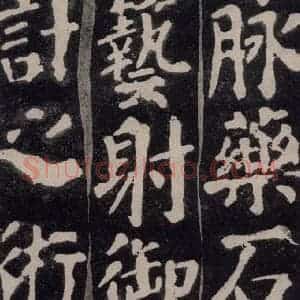 脉藥石
藝射御
計之術